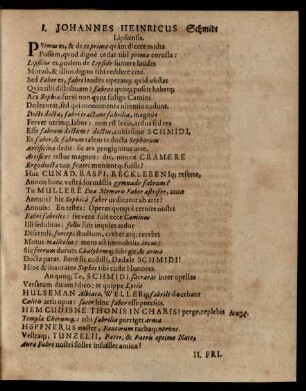 I. JOHANNES HEINRICUS Schmidt
Lipsiensis.
PRimus es, & de te primo quàm dicere multa
Possem, quod digné cedat tibi prima corolla:
Lipsius es, quidem de Lipside sumere laudes
Mutuò, & illius digno tibi reddere
Sed Faber es, fabri laudes operasq; quid obstat
Quin tibi distribuam? fabros quoq; poscit habenq;
Ars Sophica, fursi non quos fuligo Camini
Dedecorat, sed qui monumenta nitentia cudunt.
Docta docta, fabri tractant fabrilia, magnus
Fervet utrinq; labor: non est levis, ardua sed res
Esse fabrum doctum: doctus, cultissime SCHMIDI,
Ex faber, & fabrum talem te docta Sophorum
Artificina dedit. sic ars proglignitur arte.
Artifices tellus magnos: dic, nonne CRAMERE
Ergodocta tuo frueri monitorq; fuisti?
Huc CUNAD, RASPI, RECKLEBEN huc referte,
Annon hunc vestrâ formâstis gymnade fabrum?
Tu MULLERE Dea Memoris Faber astrifer, anne
Annuis? hic Sophicâ faber una dicatur ab arte?
Annuis: En testes: Operas quoq; ve cernite nostri
Fabri fabriles: fervens fuit ecce Caminus
Illi sedulitas: follis fuit inquies ardor
Discendi, forceps studium, creber amq; cerebri
Motus malleolus: mens ast immobilis
Sic ferrum durum Chalybemq; subegit, & arma
Docta parat. René sic cudisti, Dædale SCHMIDI!
Hinc & inauratos Sophie tibi cudit Honores.
An quoq; Te, SCHMIDI, sacratas inter opellas
Versatum dicam? idico; te quippe Lycëo
HULSEMAN Albiaco, WELLERq; fabrilè docebant
Cœlitis artis opus: sacer hinc faber esse potesiis.
HEM CUDISNE THONIS IN CHARISI? perge, replebis
Templa Cherumq; tibi fabrilia porriget arma
HÖPFNERUS noster, Fautorum turbaq; nervos.
Vestraq;, TUNZELII, Pater, & Patris optime Nate,
Aura Fabri nostri folles insufflet amica!
II. FRI.